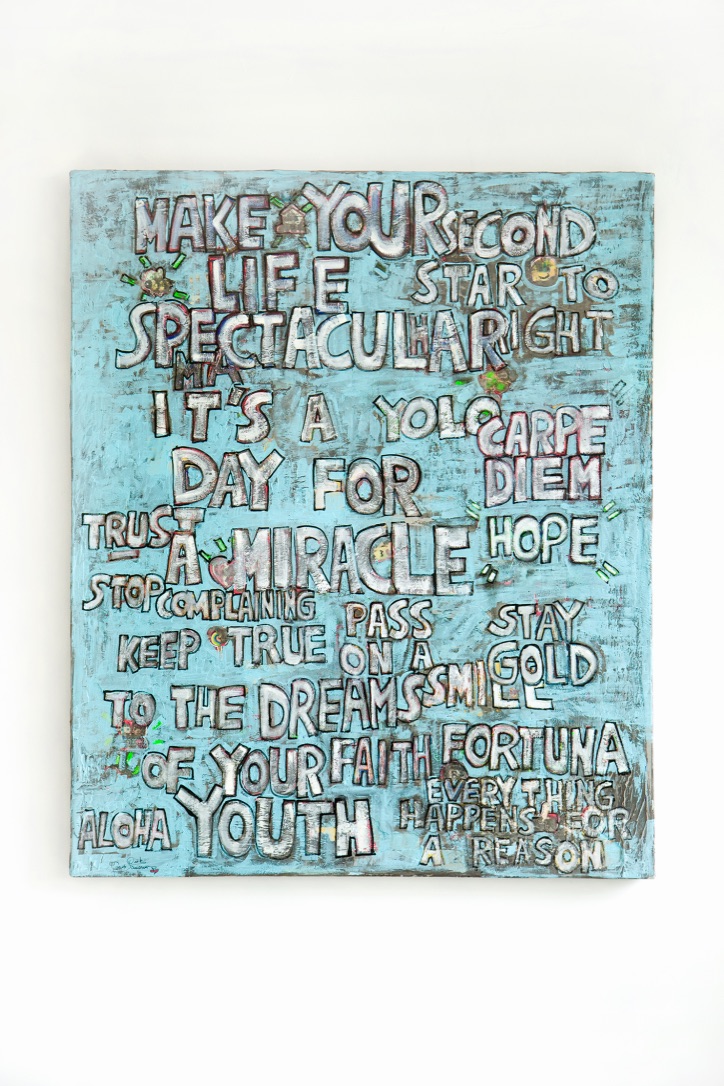 MAKE YOUR SECOND
LIFE STAR TO
SPECTACULAR RIGHT
IT'S A YOLO
CARPE
DAY FOR DIEM
TRUST
A MIRACLE HOPE
STOP COMPLAINING PASS STAY
KEEP TRUE ON A GOLD
TO THE DREAMS SMILE
OF YOUR FAITH FORTUNA
EVERYTHING
ALOHA YOUTH HAPPENS FOR
A REASON